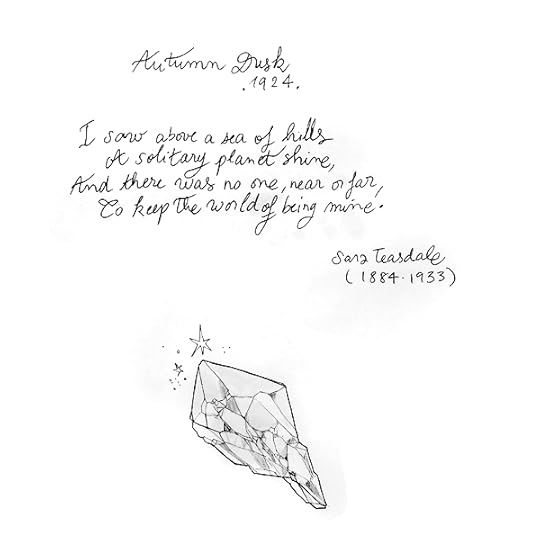 Autumn Dusk
.1924.
I saw above a sea of hills
A solitary planet shine,
And there was no one, near or far,
To keep the world of being mine.
Sara Teasdale
(1884.1933)